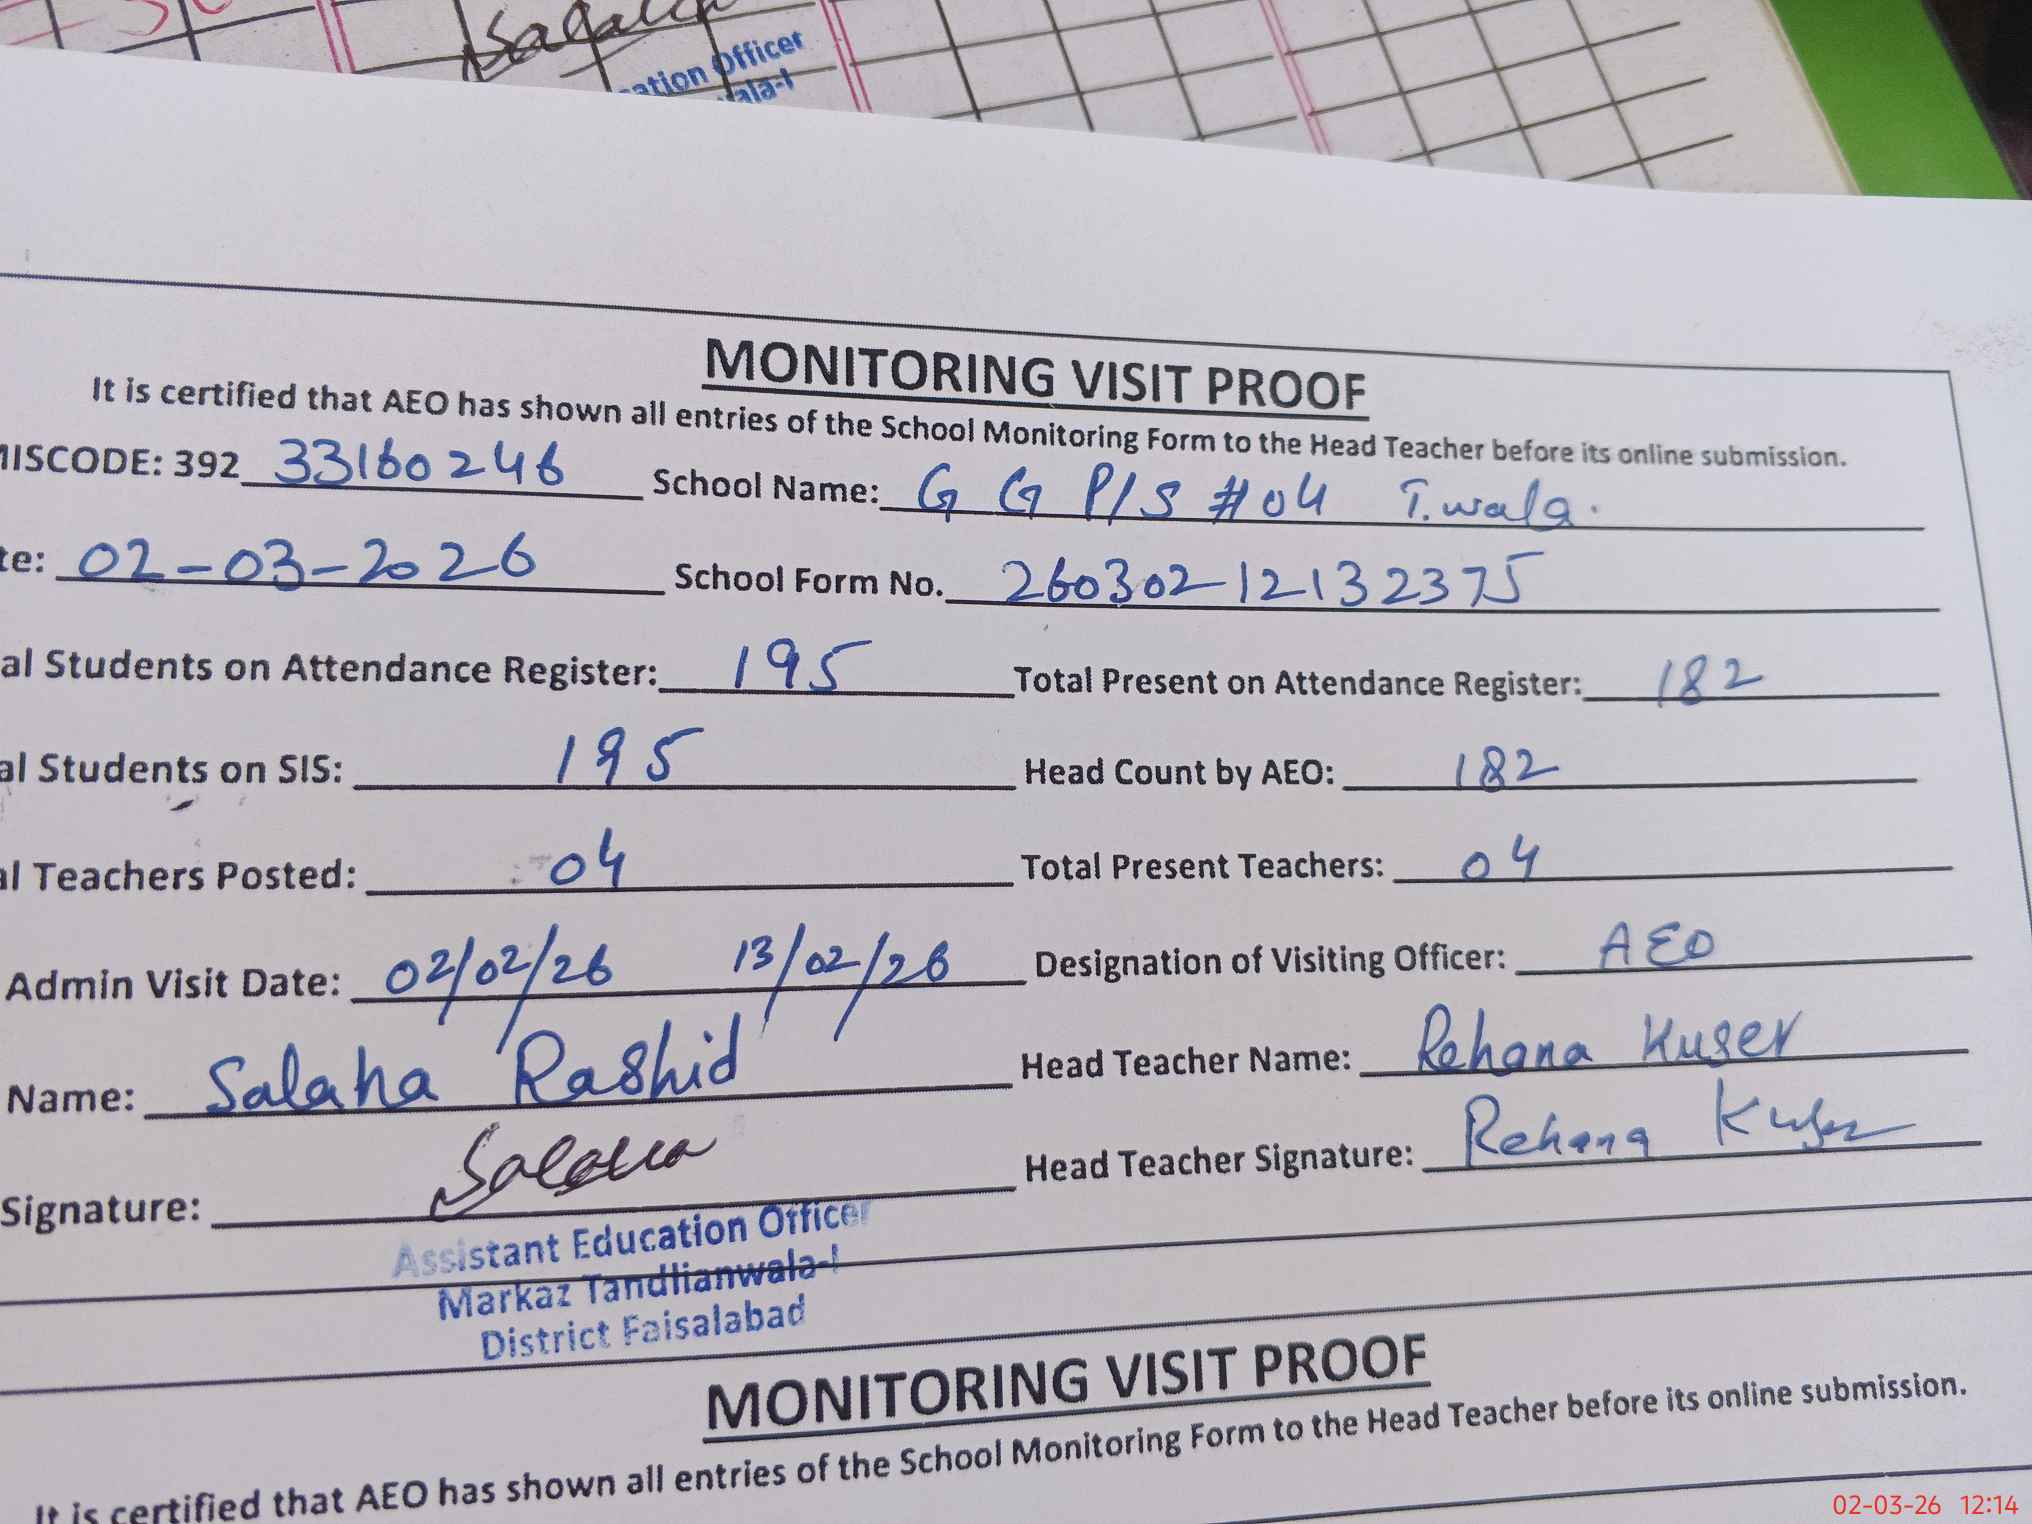 cation Officer
ala-I
MONITORING VISIT PROOF
It is certified that AEO has shown all entries of the School Monitoring Form to the Head Teacher before its online submission.
MISCODE: 392 33160246 School Name: G G P/S #04 T.wala.
te: 02-03-2026 School Form No. 260302-12132375
al Students on Attendance Register: 195 Total Present on Attendance Register: 182
al Students on SIS: 195 Head Count by AEO: 182
al Teachers Posted: 04 Total Present Teachers: 04
Admin Visit Date: 02/02/26 13/02/26 Designation of Visiting Officer: AEO
Name: Salaha Rashid Head Teacher Name: Rehana Kuser
Signature: Head Teacher Signature: Rehana
Assistant Education Officer
Markaz Tandlianwala-I
District Faisalabad
MONITORING VISIT PROOF
It is certified that AEO has shown all entries of the School Monitoring Form to the Head Teacher before its online submission.
02-03-26 12:14